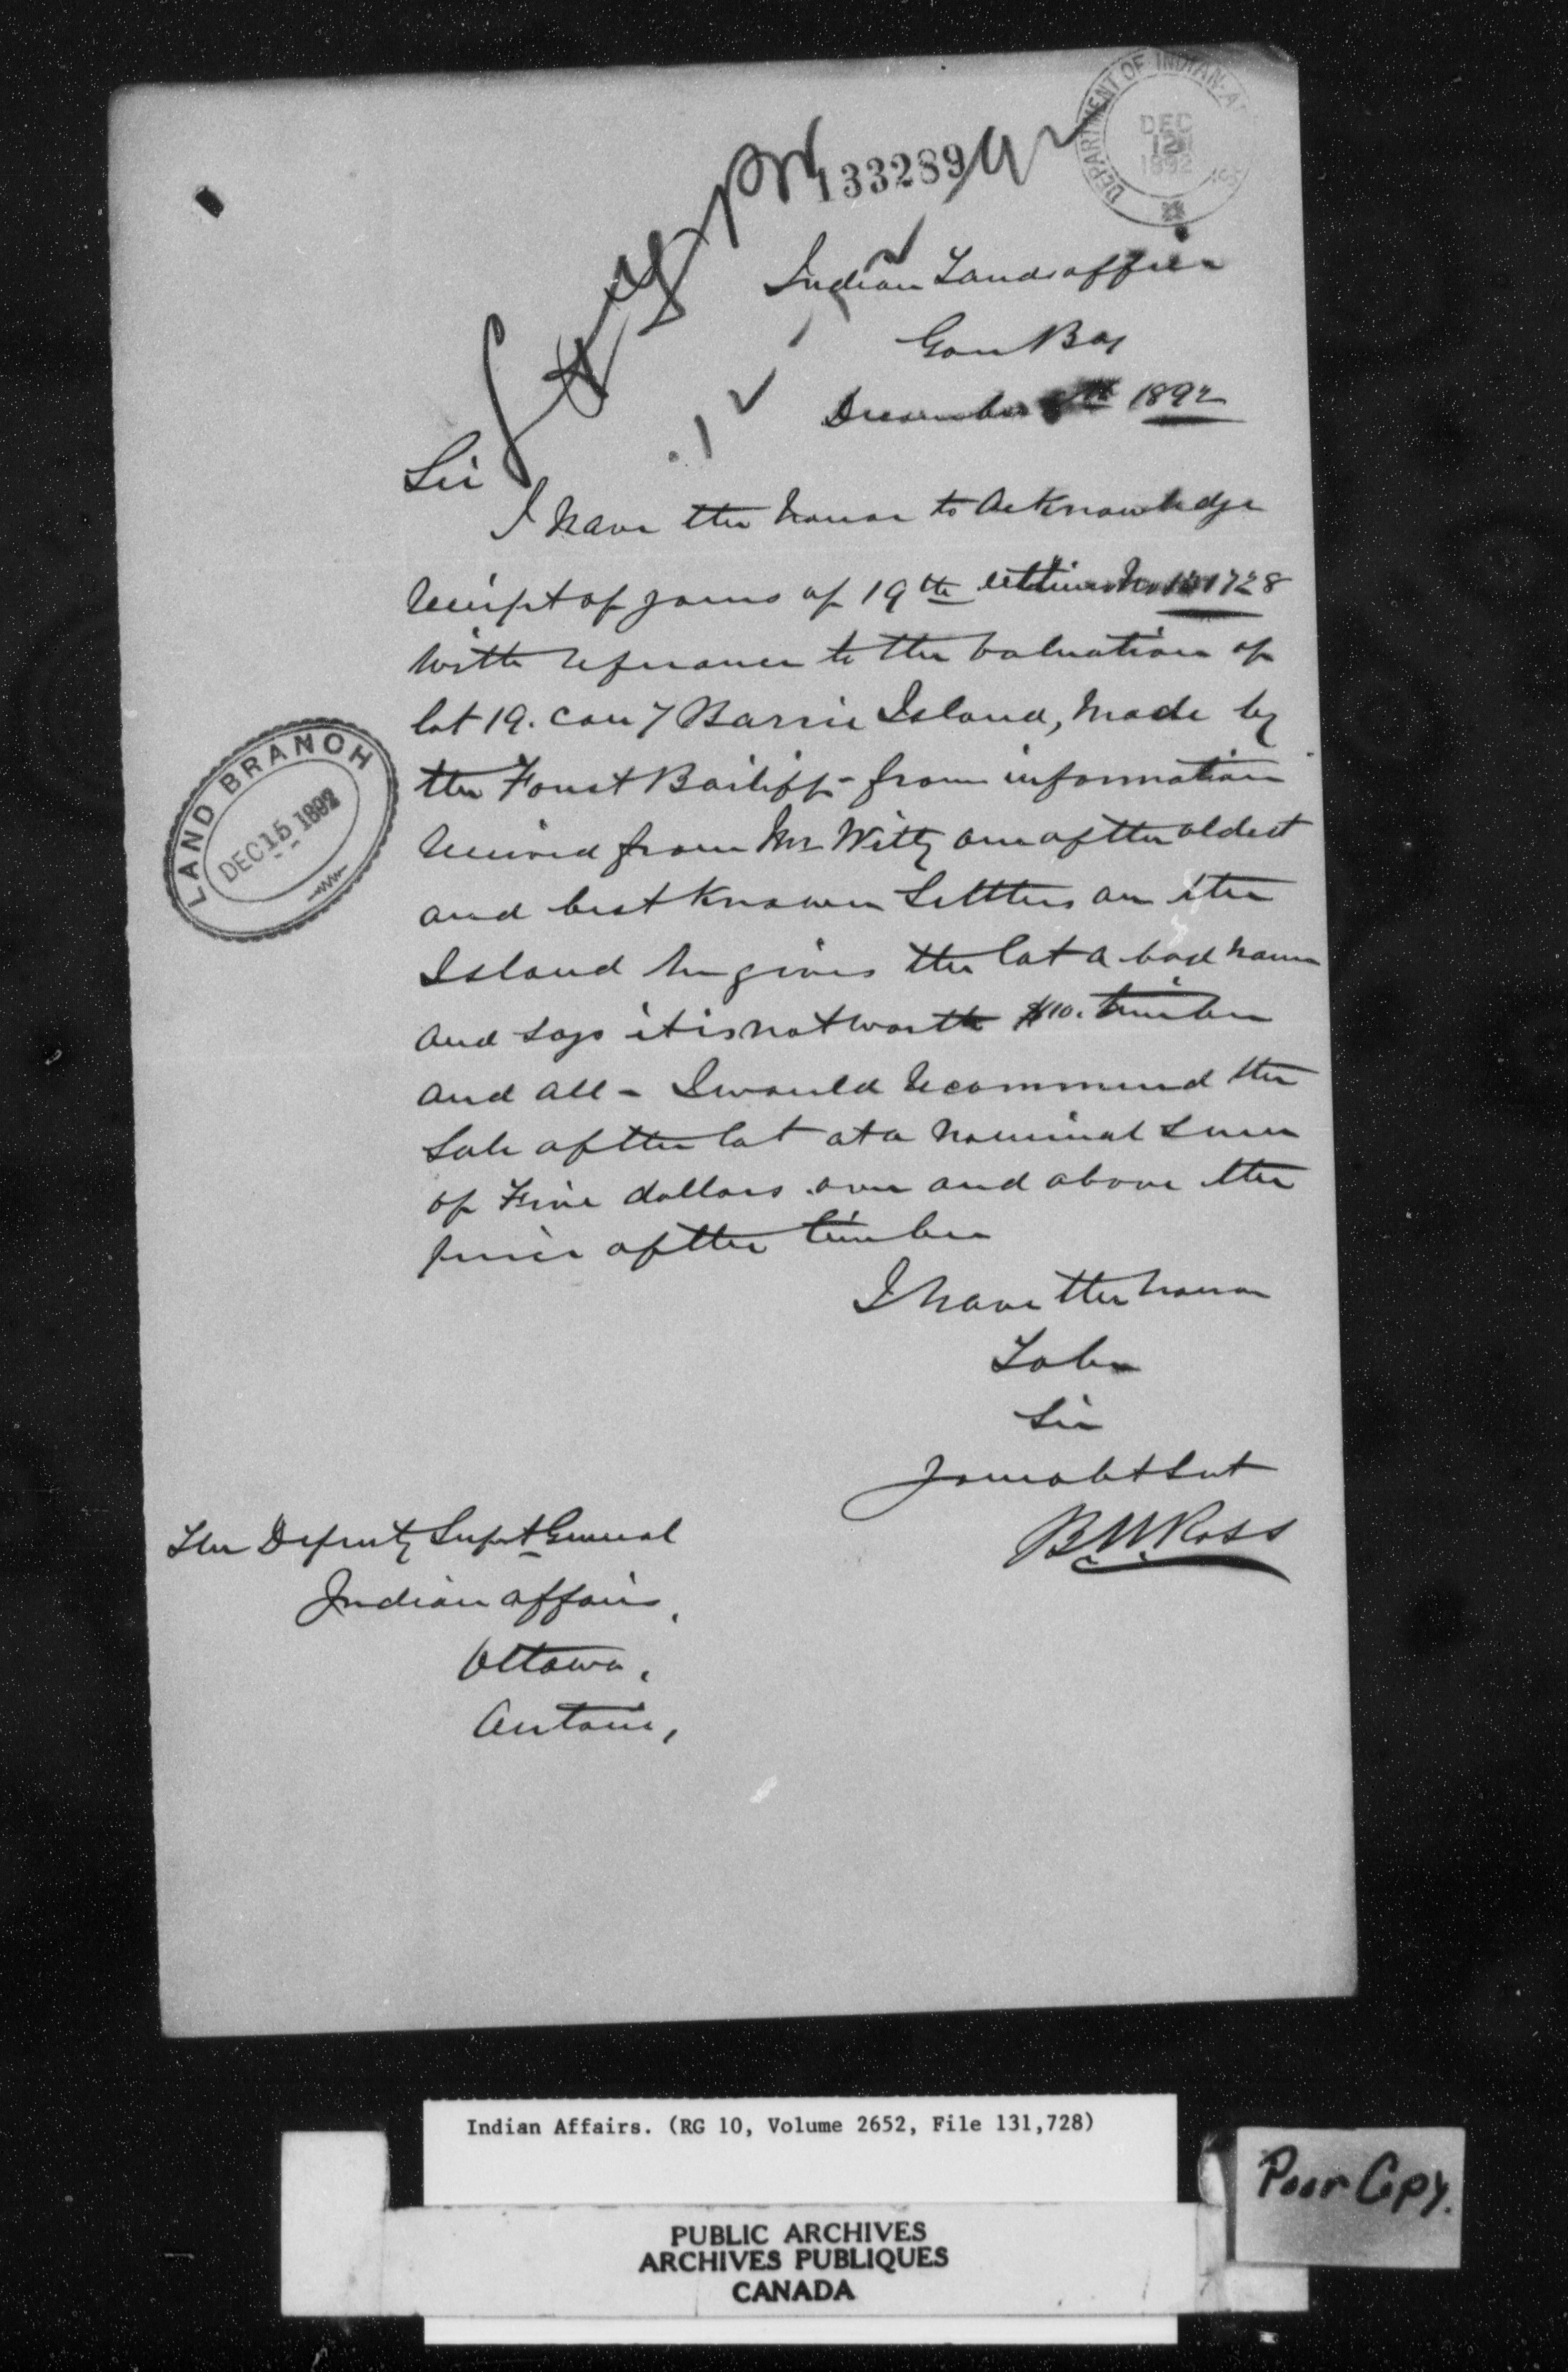 DEPARTMENT OF INDIAN A
DEC
12
1892
133289
Indian Lands office
Gore Bay
December 8th 1892
Sir
I have the honor to acknowledge
receipt of yours of 19th ultimo No 131728
with reference to the valuation of
lot 19. con 7 Barrie Island, made by
the Forest Bailiff - from information
received from Mr Witty one of the oldest
and best known settlers on the
Island he gives the lot a bad name
and says it is not worth $10. timber
and all - I would recommend the
sale of the lot at a nominal sum
of Five dollars over and above the
price of the timber
I have the honor
To be
Sir
Your obt Svt
B W Ross
The Deputy Supt General
Indian affairs,
Ottawa,
Ontario,
LAND BRANCH
DEC 15 1892
Indian Affairs. (RG 10, Volume 2652, File 131,728)
PUBLIC ARCHIVES
ARCHIVES PUBLIQUES
CANADA
Poor Copy.